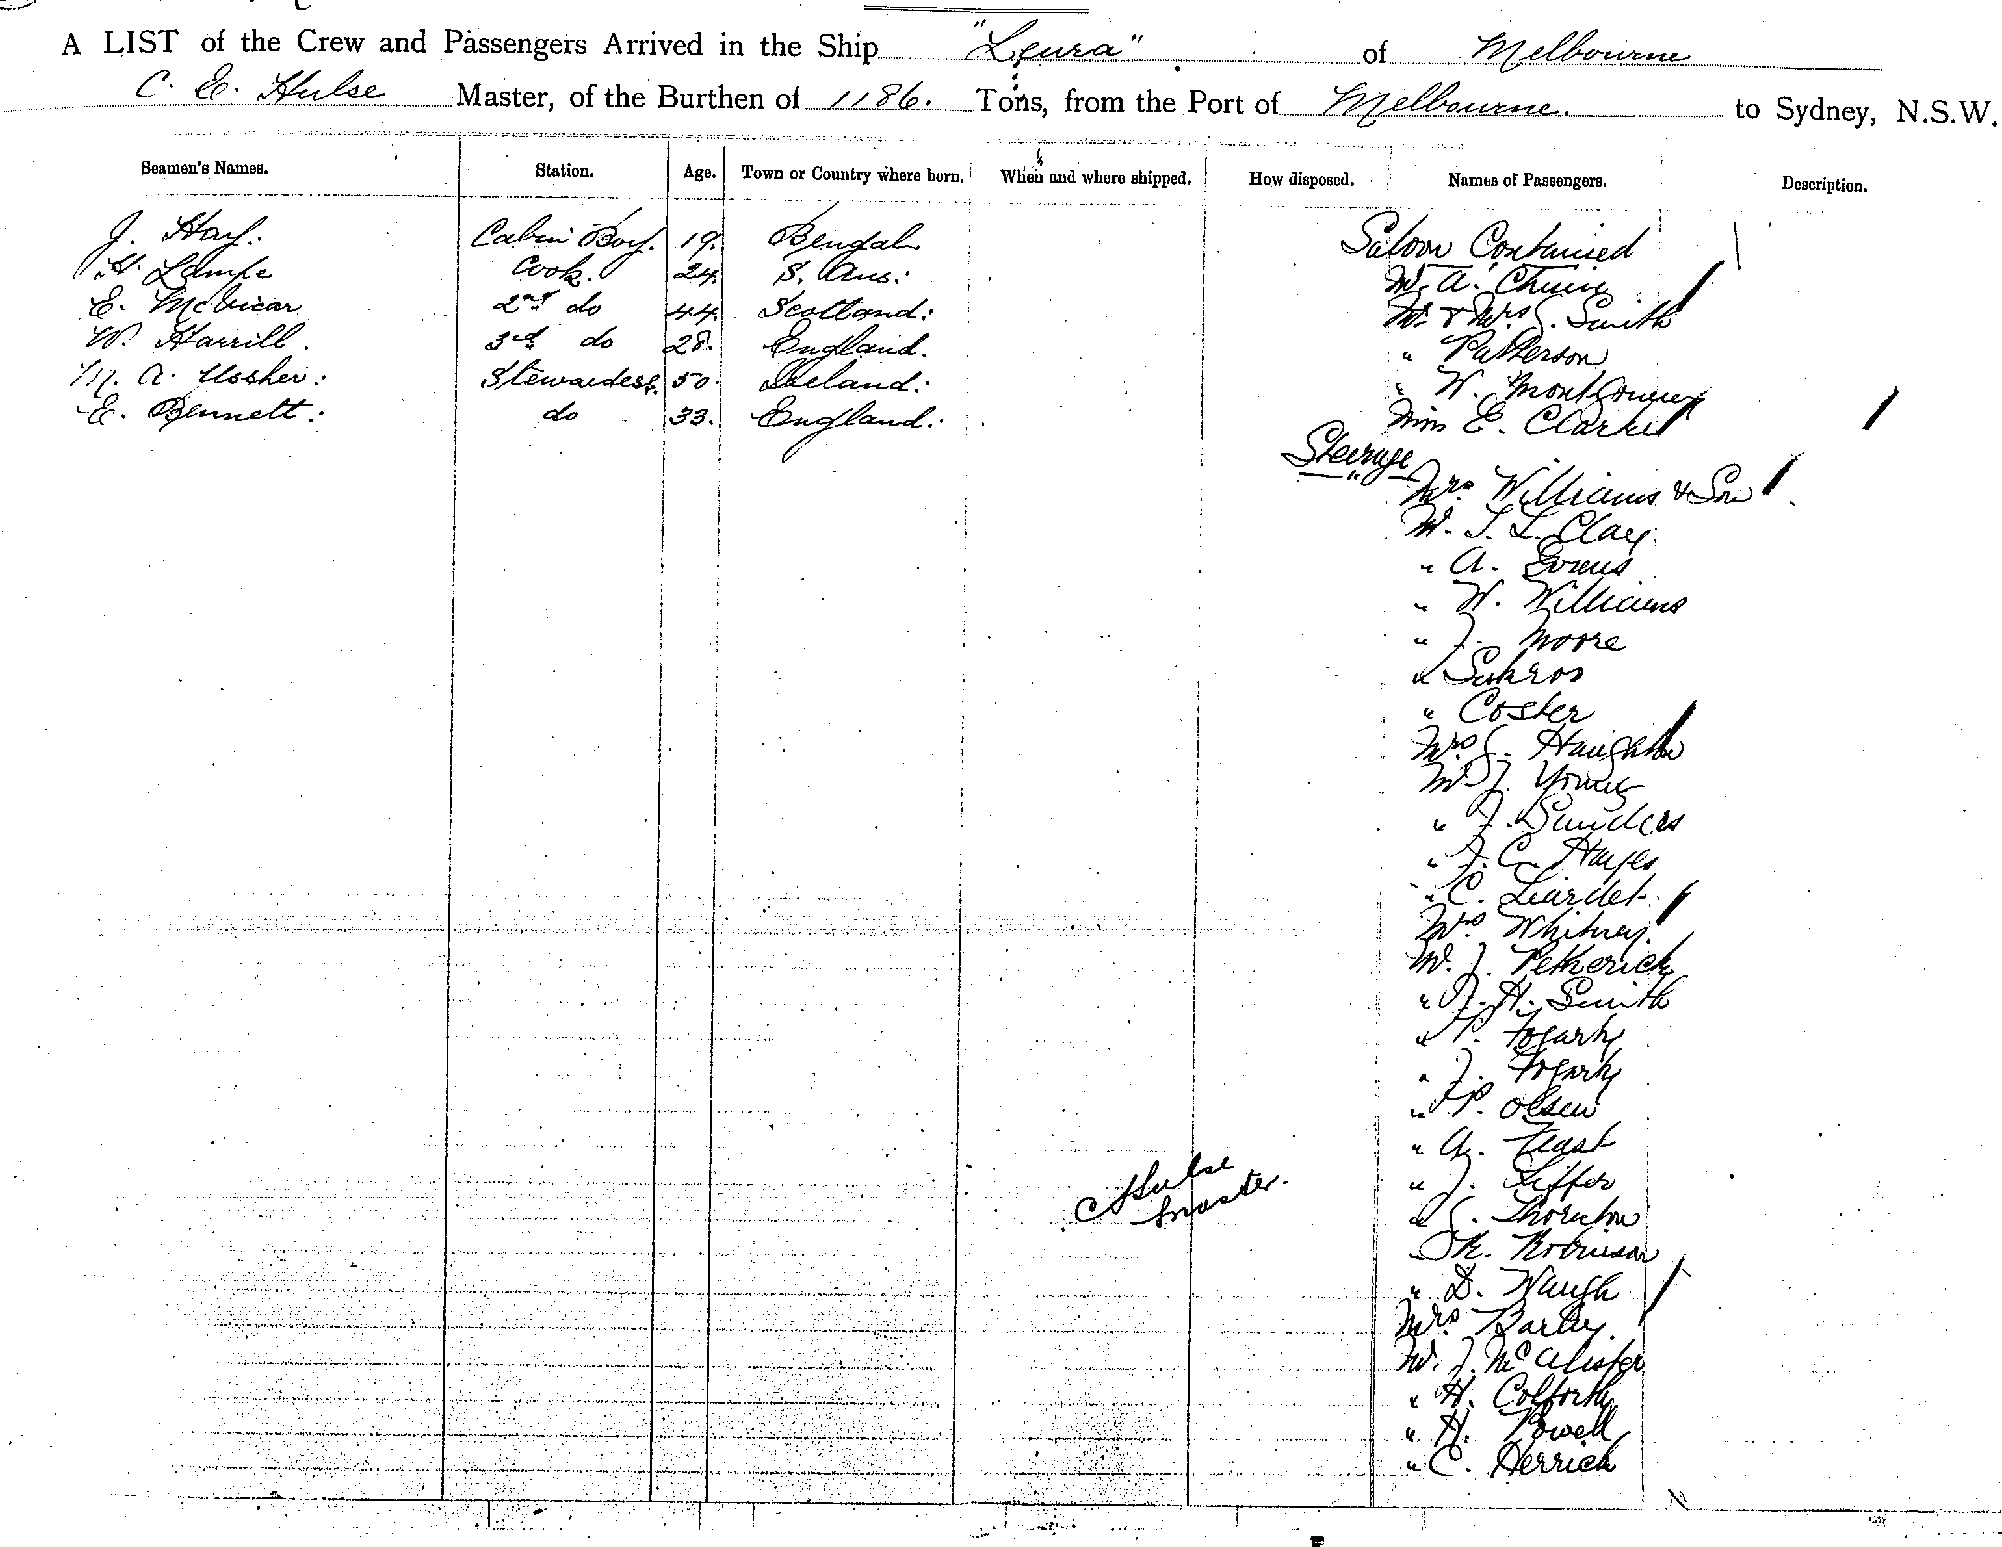 A LIST of the Crew and Passengers Arrived in the Ship "Leura" of Melbourne
C. E. Hulse Master, of the Burthen of 1186. Tons, from the Port of Melbourne. to Sydney, N.S.W.
Seamen's Names. Station. Age. Town or Country where born. When and where shipped. How disposed. Names of Passengers. Description.
J. Hay. Cabin Boy. 19. Bengal Saloon Contained
H. Lampe Cook. 24. S. Aus: Mr. A.
E. McVicar 2nd do 44. Scotland: Mr. & Mrs J. Smith
W. Harrill. 3rd do 28. England. " Patterson
M. A. Ussher: Stewardess. 50. Ireland: " W. Montgomery
E. Bennett: do 33. England: Miss E. Clarke
Steerage
Mrs Williams & Son
Mr. T. L. Clay.
" A. Evans
" W. Williams
" J. Moore
"
" Coster
Mrs J. Haughton
Mr J. Young
" J. Sanders
" J. C. Hayes
" C. Liardet.
Mrs Whitney.
Mr. J. Petherick
" J. H. Smith
" P. Fogarty
" J. Fogarty
" P. Olsen
" A. Feast
" J.
" J. Thornton
" R. Robinson
" D. Waugh
Mrs
Mr. J. McAlister
" H.
" H. Powell
" C. Herrick
C Hulse
Master.